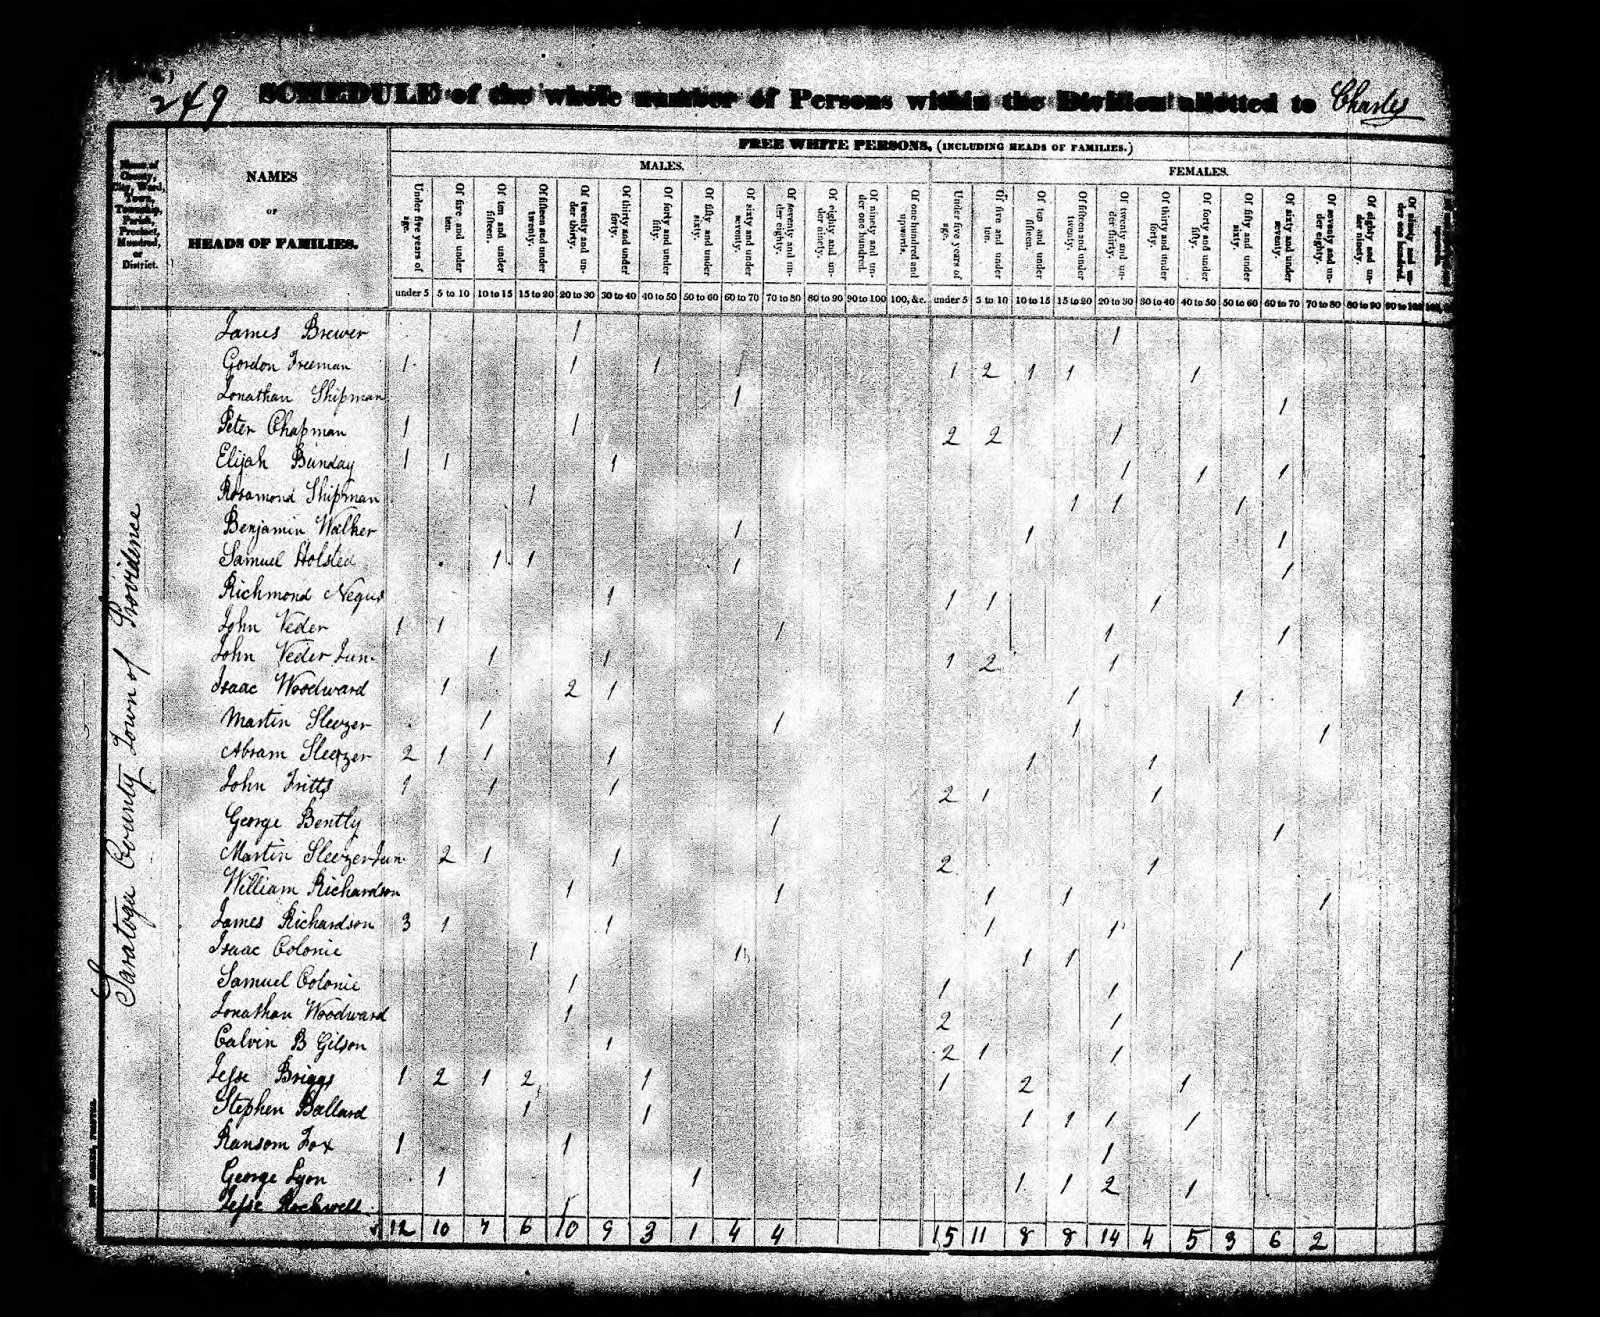 249 SCHEDULE of the whole number of Persons within the Division allotted to Charles
FREE WHITE PERSONS, (INCLUDING HEADS OF FAMILIES.)
MALES. FEMALES.
Name of County, City, Ward, Town, Township, Parish, Precinct, Hundred, or District.
NAMES
OF
HEADS OF FAMILIES.
Under five years of age. Of five and under ten. Of ten and under fifteen. Of fifteen and under twenty. Of twenty and under thirty. Of thirty and under forty. Of forty and under fifty. Of fifty and under sixty. Of sixty and under seventy. Of seventy and under eighty. Of eighty and under ninety. Of ninety and under one hundred. Of one hundred and upwards. Under five years of age. Of five and under ten. Of ten and under fifteen. Of fifteen and under twenty. Of twenty and under thirty. Of thirty and under forty. Of forty and under fifty. Of fifty and under sixty. Of sixty and under seventy. Of seventy and under eighty. Of eighty and under ninety. Of ninety and under one hundred.
under 5 5 to 10 10 to 15 15 to 20 20 to 30 30 to 40 40 to 50 50 to 60 60 to 70 70 to 80 80 to 90 90 to 100 100, &c. under 5 5 to 10 10 to 15 15 to 20 20 to 30 30 to 40 40 to 50 50 to 60 60 to 70 70 to 80 80 to 90 90 to 100
Saratoga County Town of Providence
James Brewer 1 1
Gordon Freeman 1 1 1 1 1 2 1 1 1
Jonathan Shipman 1 1
Peter Chapman 1 1 2 2 1
Elijah Bunday 1 1 1 1 1 1
Rosamond Shipman 1 1 1 1
Benjamin Walker 1 1 1
Samuel Holsted 1 1 1 1
Richmond Negus 1 1 1 1
John Veder 1 1 1 1 1
John Veder Jun. 1 1 1 2 1
Isaac Woodward 1 2 1 1 1
Martin Sleezer 1 1 1 1
Abram Sleezer 2 1 1 1 1 1
John Fritts 1 1 1 2 1 1
George Bently 1 1
Martin Sleezer Jun 2 1 1 2 1
William Richardson 1 1 1 1 1
James Richardson 3 1 1 1 1
Isaac Colonie 1 1 1 1 1
Samuel Colonie 1 1 1
Jonathan Woodward 1 2 1
Calvin B Gilson 1 2 1 1
Jesse Briggs 1 2 1 2 1 1 2 1
Stephen Ballard 1 1 1 1 1 1
Ransom Fox 1 1 1
George Lyon 1 1 1 1 2 1
Jesse Rockwell 1
12 10 7 6 10 9 3 1 4 4 15 11 8 8 14 4 5 3 6 2